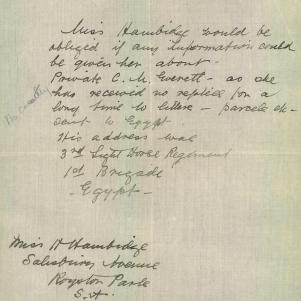 Miss Hambidge would be
obliged if any information could
be given her about-
Private C. M. Everett - as she
has received no replies for a
long time to letters - parcels etc
sent to Egypt
His address was
3rd Light Horse Regiment
1st Brigade
- Egypt -
No casualty
Miss H Hambidge
Salisbury Avenue
Royston Park
S.A.